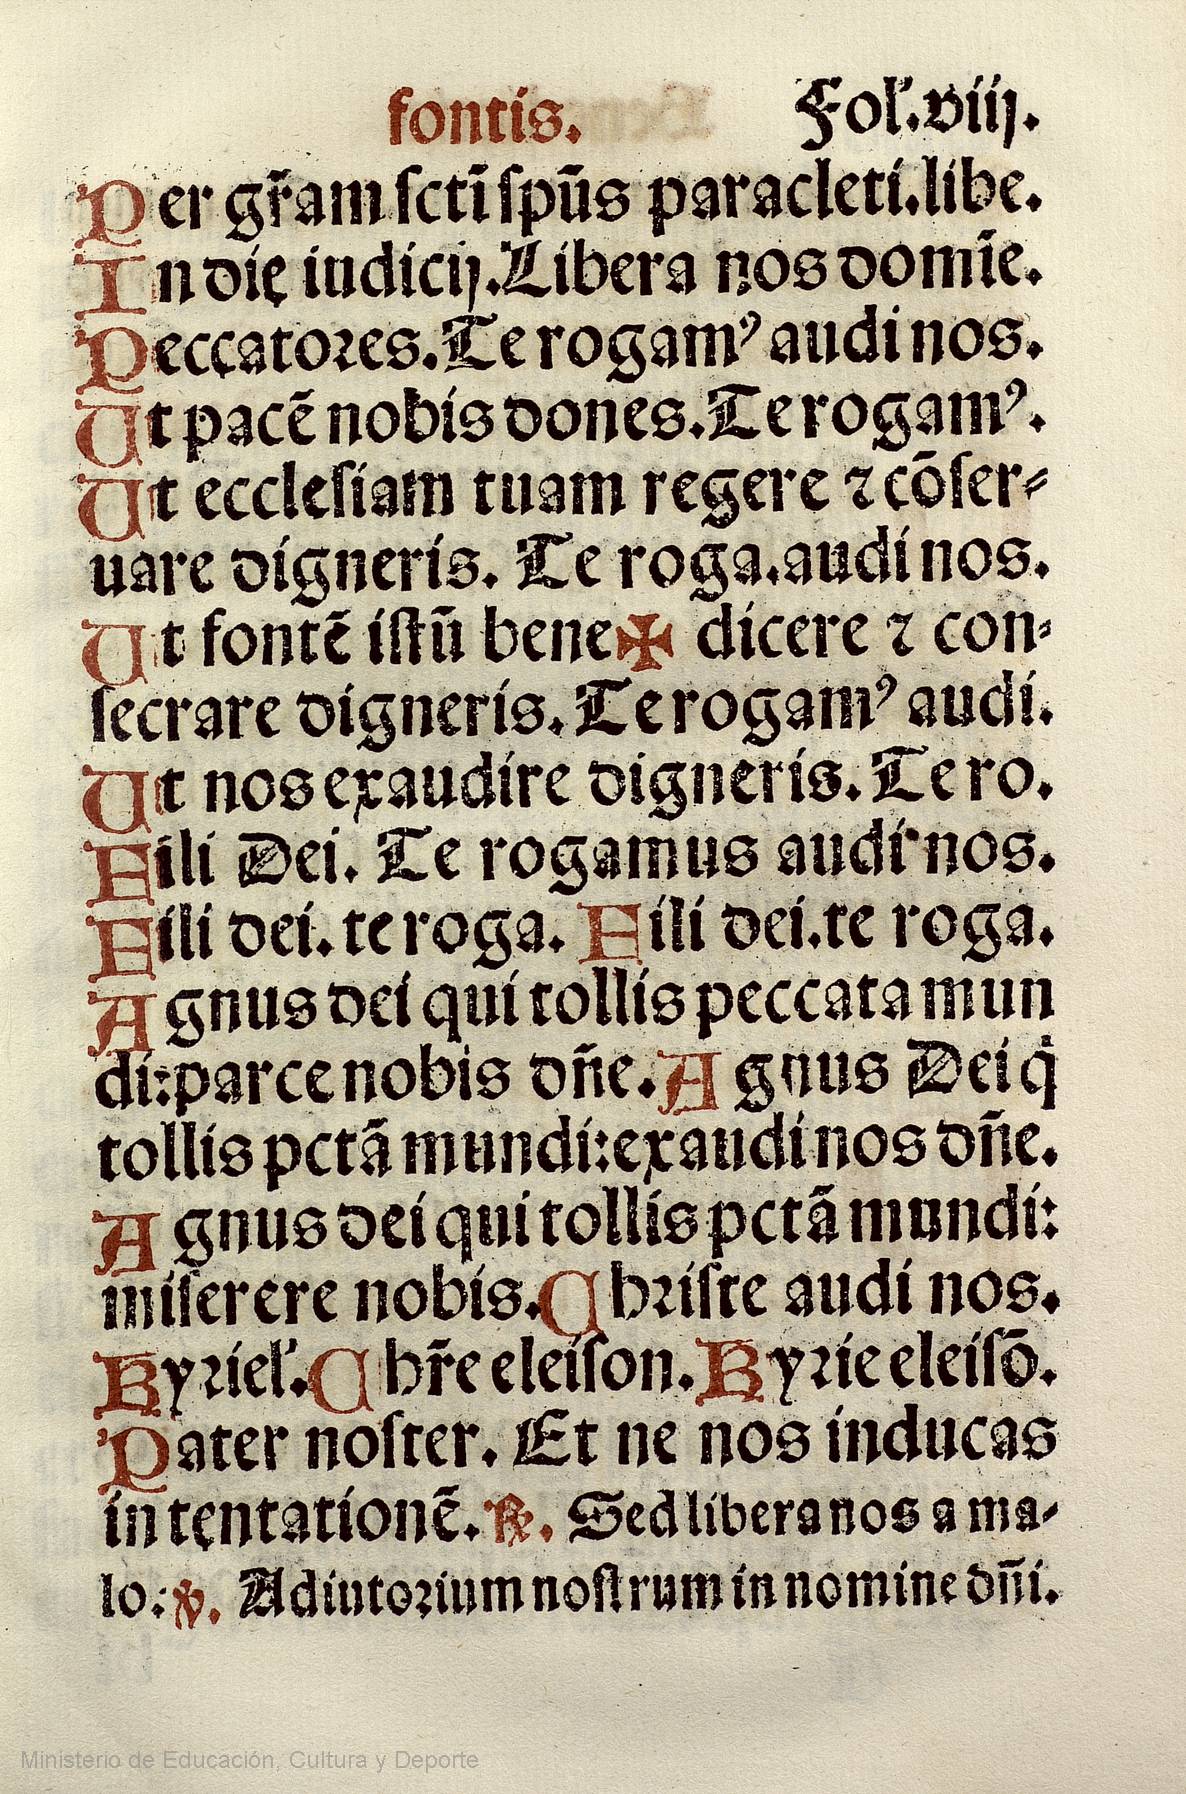 fontis. Fol'.viij.
Per gr̃am sctĩ spũs paracleti.libe.
In die iudicij.Libera nos domĩe.
Peccatores.Te rogamꝰ audi nos.
Ut pacẽ nobis dones.Te rogamꝰ.
Ut ecclesiam tuam regere ⁊ cõser⸗
uare digneris. Te roga.audi nos.
Ut fontẽ istũ bene✠ dicere ⁊ con⸗
secrare digneris.Te rogamꝰ audi.
Ut nos exaudire digneris. Te ro.
Fili Dei. Te rogamus audi nos.
Fili dei. te roga. Fili dei.te roga.
Agnus dei qui tollis peccata mun
di:parce nobis dñe.Agnus Dei q̇
tollis pctã mundi:exaudi nos dñe.
Agnus dei qui tollis pctã mundi:
miserere nobis.Christe audi nos.
Kyriel'.Chr̃e eleison.Kyrie eleisõ.
Pater noster. Et ne nos inducas
in tentationẽ. ℟. Sed libera nos a ma⸗
lo: ℣. Adiutorium nostrum in nomine dñi.
Ministerio de Educación, Cultura y Deporte